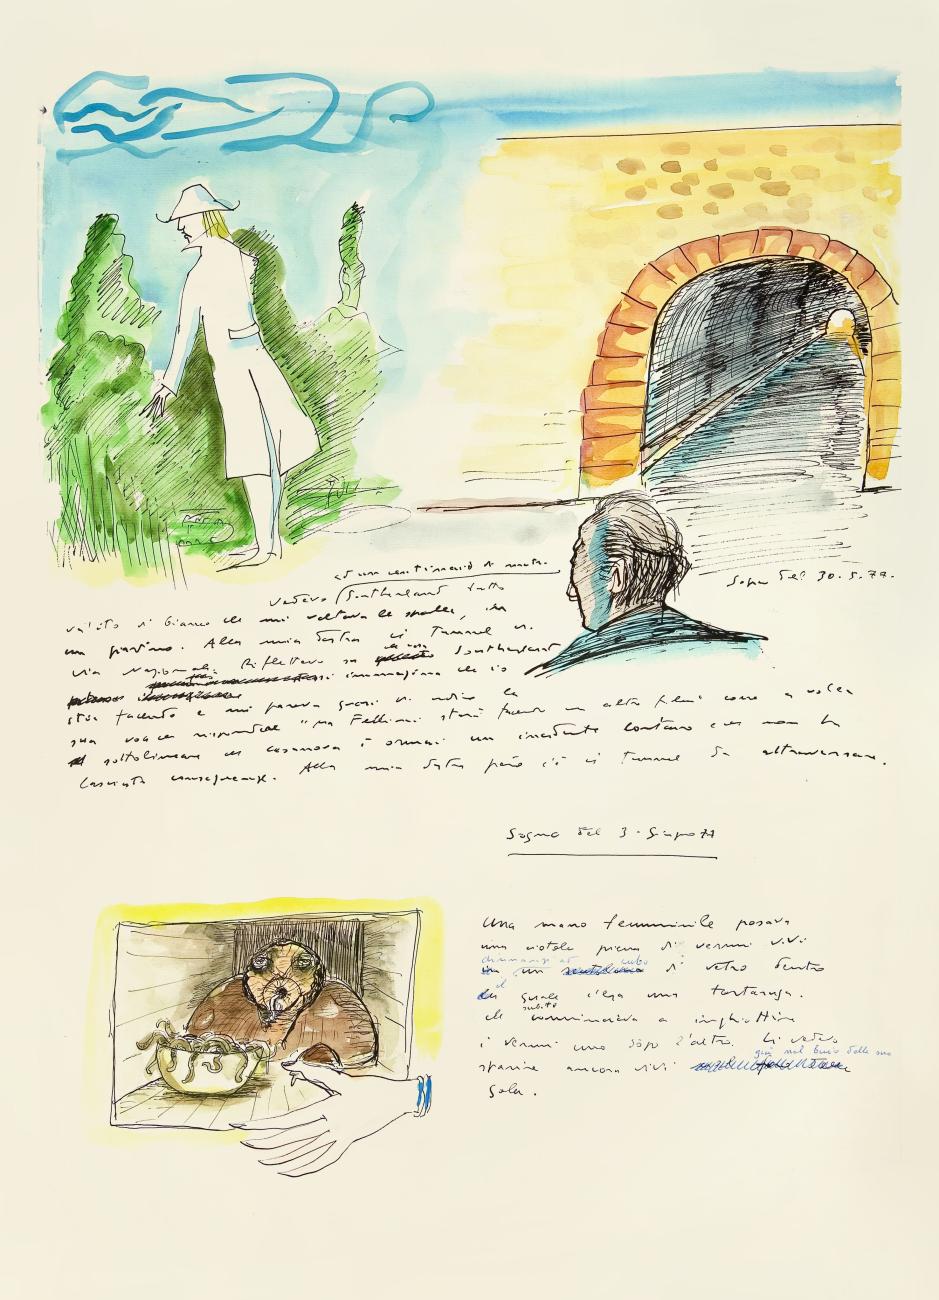 ad un centimetro di muro.
Sogno del 30.5.77.
Vedevo Sutherland tutto
vestito di bianco che mi voltava le spalle, in
un giardino. Alla mia destra il Tunnel di
via Nazionale. Riflettevo su Sutherland
immaginava che io
stia facendo e mi pareva quasi di udire la
sua voce rispondere "ma Fellini starà facendo un altro film" come a voler
sottolineare che casanova è ormai un incidente lontano e che non ha
lasciato conseguenze. Alla mia destra però c'è il Tunnel da attraversare.
Sogno del 3 - Giugno 77
Una mano femminile posava
una ciotola piena di vermi vivi
dinnanzi ad cubo
un di vetro dentro
il
quale c'era una tartaruga.
subito
che cominciava a inghiottire
i vermi uno dopo l'altro. Li vedevo
giù nel buio della sua
sparire ancora vivi
gola.